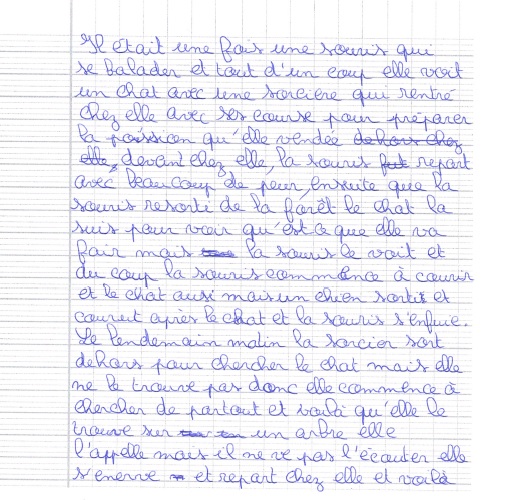 Il était une fois une souris qui
se balader et tout d'un coup elle voit
un chat avec une sorciere qui rentré
chez elle avec ses course pour préparer
la poission qu'elle vendée dehors chez
elle, devant chez elle, la souris fut repart
avec beaucoup de peur, ensuite que la
souris resorti de la forêt le chat la
suis pour voir qu'est ce que elle va
fair mais la souris le voit et
du coup la souris commence à courir
et le chat ausi mais un chien sortit et
courut après le chat et la souris s'enfuie.
Le lendemain matin la sorcier sort
dehors pour chercher le chat mais elle
ne le trouve pas donc elle commence à
chercher de partout et voila qu'elle le
trouve sur un arbre elle
l'appelle mais il ne ve pas l'éccuter elle
s'enerve et repart chez elle et voilà